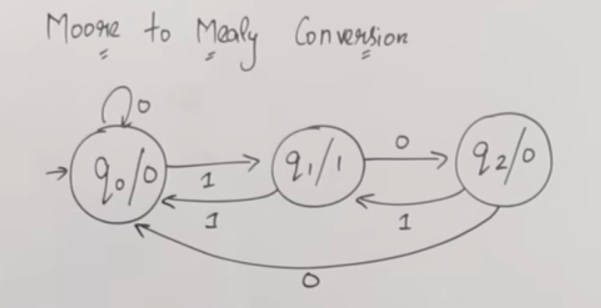 Moore to Mealy Conversion
0
q0/0
1
q1/1
0
q2/0
1
1
0